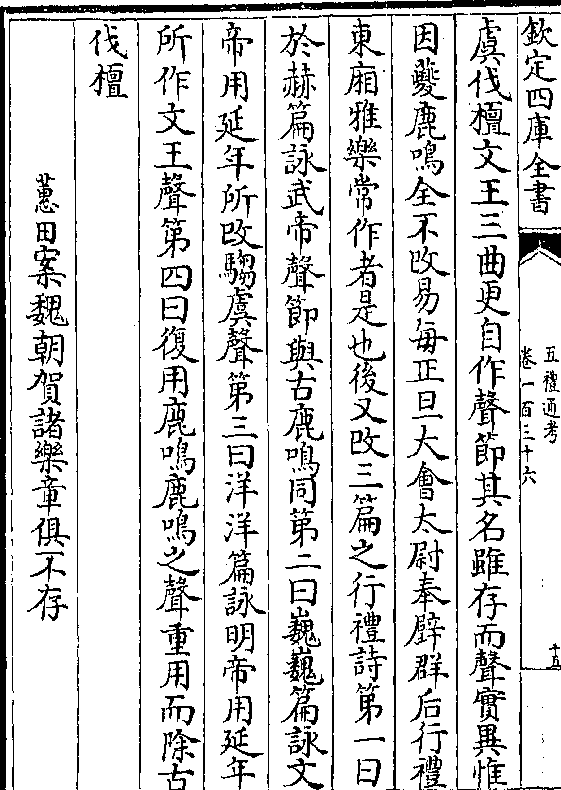 欽定四庫全書
五禮通考
卷一百三十六
十五
虞伐檀文王三曲更自作聲節其名雖存而聲實異惟
因夔鹿鳴全不改易每正旦大會太尉奉璧群后行禮
東廂雅樂常作者是也後又改三篇之行禮詩第一曰
於赫篇詠武帝聲節與古鹿鳴同第二曰巍巍篇詠文
帝用延年所改騶虞聲第三曰洋洋篇詠明帝用延年
所作文王聲第四曰復用鹿鳴鹿鳴之聲重用而除古
伐檀
蕙田案魏朝賀諸樂章俱不存